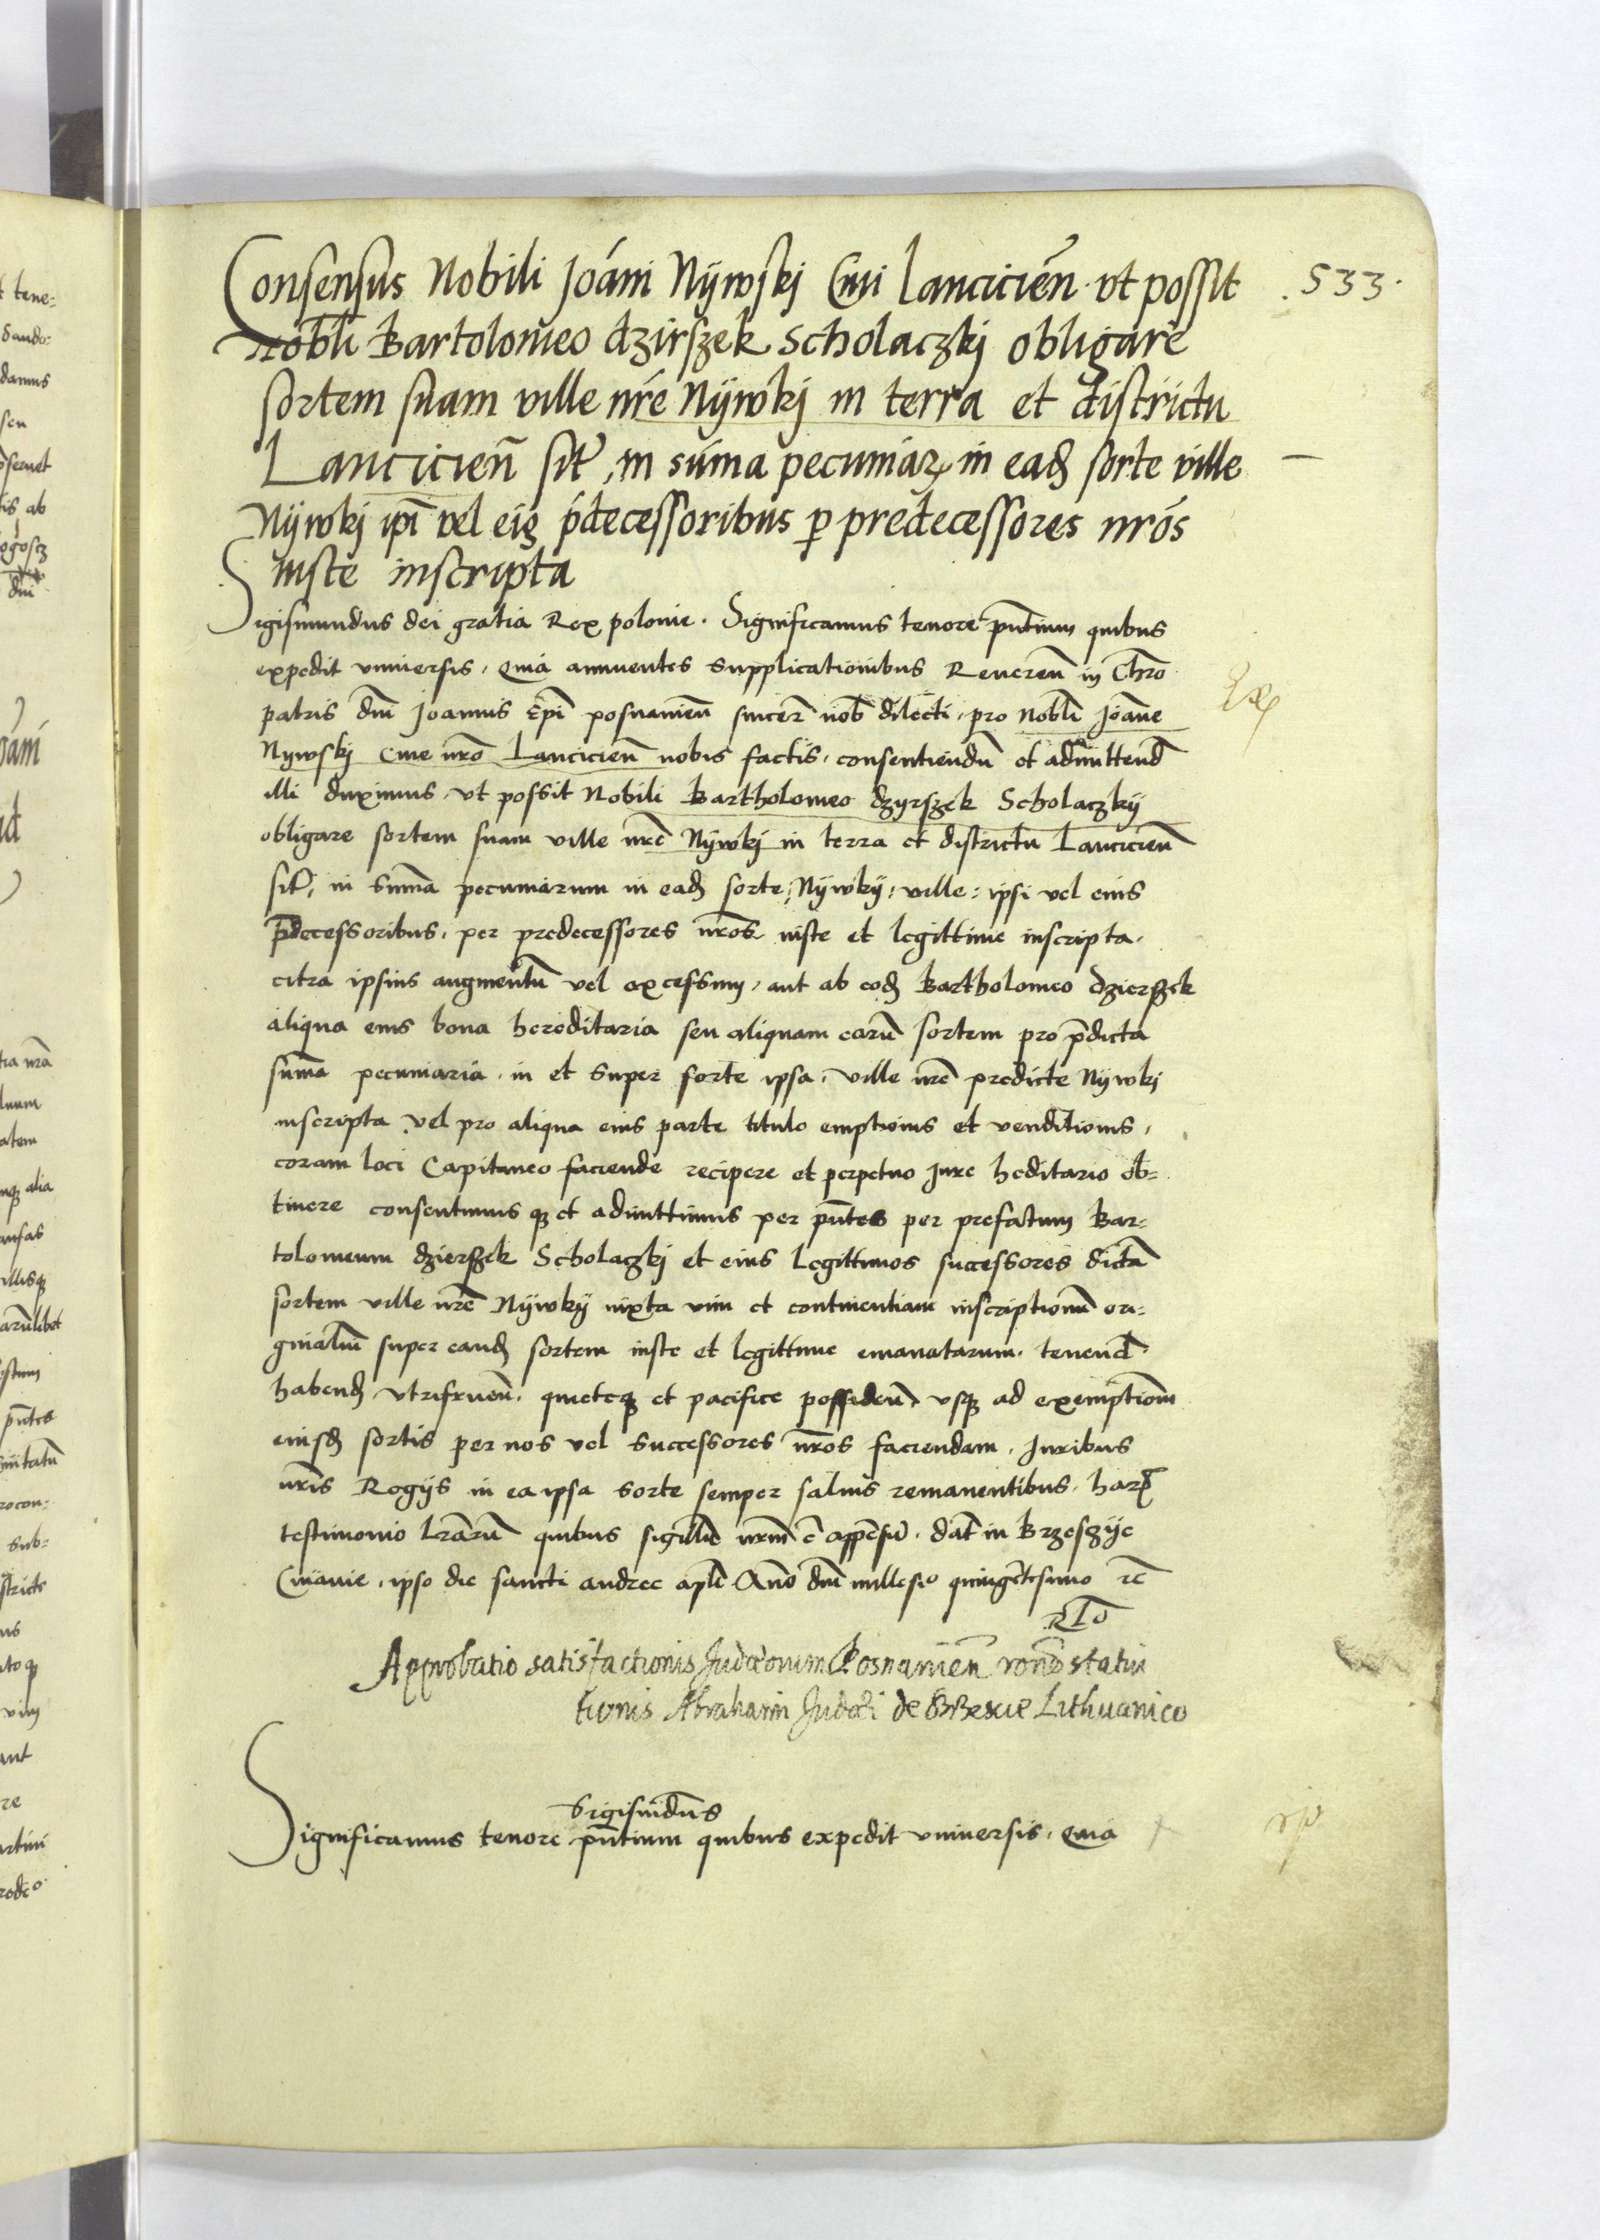 Consensus Nobili Joáni Nÿwskj Civi Lancicieñ ut possit . 533 .
nobili Bartolomeo dzirszek Scholaczkj obligare
sortem suam ville nr̃e Nÿwkj in terra et districtu
Lancicieñ sit̃, in sũma pecuniaꝝ in eadẽ sorte ville
Nÿwkj ip̃i vel eiꝰ p̃decessoribus ꝑ predecessores nr̃os
iuste inscripta
Sigismundus dei gratia Rex polonie . Significamus tenore pñtium quibus
expedit universis, Quia annuentes supplicationibus Reveren̄ in Chr̄o
patris dn̄i Joannis Ep̄i posnanien̄ sincer̄ nob̄ dilecti, pro Nobl̄i Joañe
Nywskj Cive nr̄o Lancicien̄ nobis factis, consentiendū et admittend̄
illi duximus, ut possit Nobili Bartholomeo dzyrszek Scholaczkÿ
obligare sortem suam ville nr̄e Nÿwkj in terra et districtu Lancicien̄
sit̄, in sum̄a pecuniarum in ead̄ sorte, Nÿwkÿ, ville, ipsi vel eius
p̄decessoribus, per predecessores nr̄os iuste et legittime inscripta,
citra ipsius augmentū vel excessum, aut ab eod̄ Bartholomeo dzierszek
aliqua eius bona hereditaria seu aliquam earū sortem pro p̄dicta
sum̄a pecuniaria, in et super sorte ipsa, ville nr̄e predicte Nÿwkj
inscripta vel pro aliqua eius parte titulo emptionis et venditionis,
coram loci Capitaneo faciende recipere et perpetuo Jure heditario ob-
tinere consentimus qȝ et admittimus per pn̄tes per prefatum Bar-
tolomeum dzierszek Scholaczkj et eius legittimos successores dictā
sortem ville nr̄e Nÿwkÿ iuxta vim et continentiam inscriptionū ori-
ginaliū super eand̄ sortem iuste et legittime emanatarum, tenend̄
habend̄ utifruen̄, quieteqȝ et pacifice possiden̄, usqȝ ad exemptionē
eiusd̄ sortis per nos vel successores nr̄os faciendam, Juribus
nr̄is Regÿs in ea ipsa sorte semper salvis remanentibus, harꝝ
testimonio lr̄arū quibus sigillū nr̄m ē appēsū, dat̄ in Brzesczÿe
Cuiavie, ipso die sancti andree apl̄i Año dn̄i millesio quingētesimo rē
Rl̄o
Approbatio satisfactionis Judæorum Posnanien̄ ron̄e statui
tionis Abrahami Judæi de Brescie Lithuanico
Sigismūdus
Significamus tenore pn̄tium quibus expedit universis, Quia